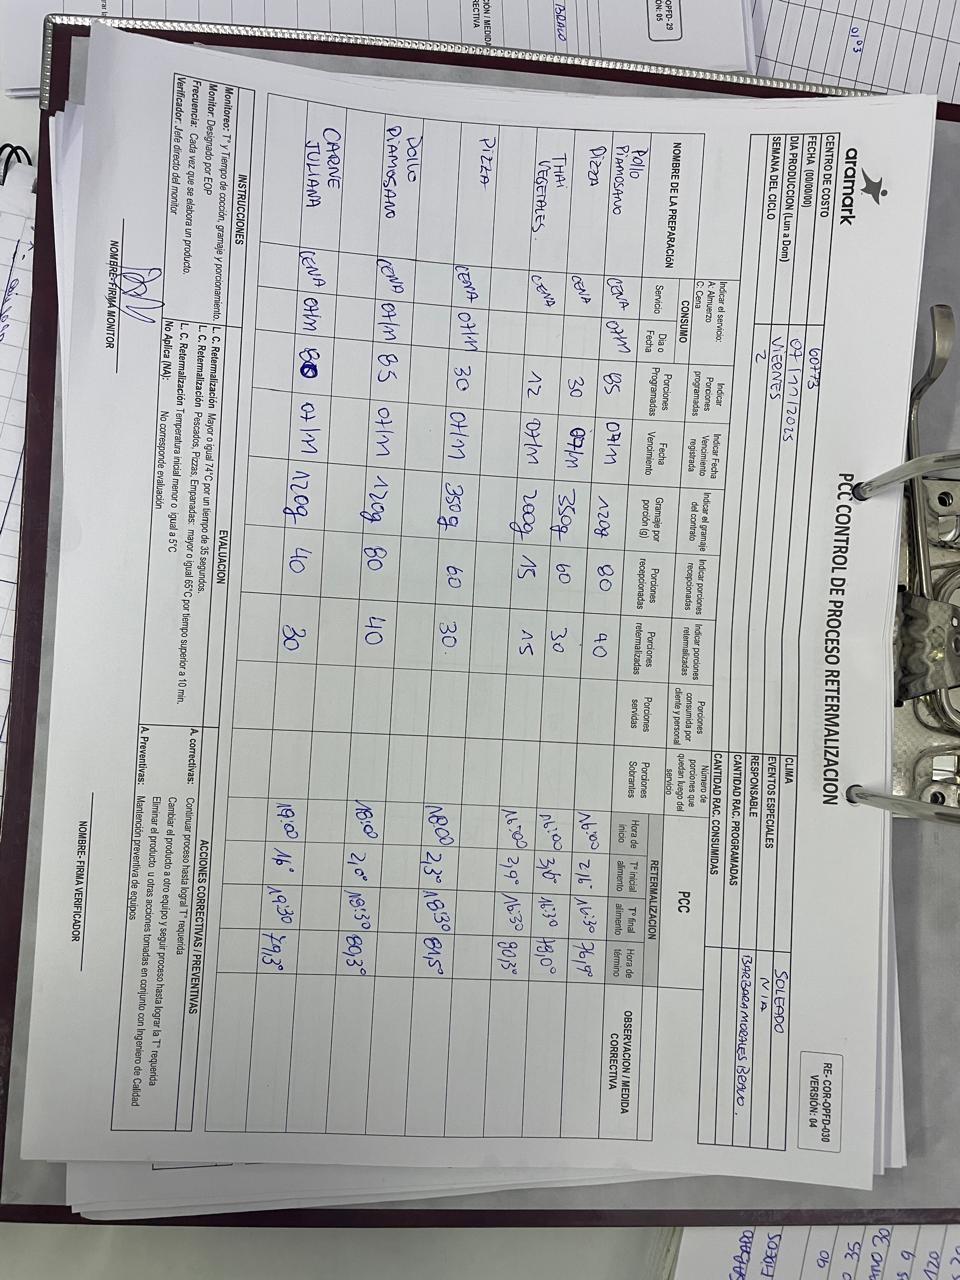 aramark
PCC CONTROL DE PROCESO RETERMALIZACION
RE- COR-OPFD-030
VERSIÓN: 04
CENTRO DE COSTO 60773
FECHA (00/00/00) 07/11/2025
DIA PRODUCCION (Lun a Dom) VIERNES
SEMANA DEL CICLO 2
CLIMA SOLEADO
EVENTOS ESPECIALES N/A
RESPONSABLE BARBARA MORALES BRAVO.
CANTIDAD RAC. PROGRAMADAS
CANTIDAD RAC. CONSUMIDAS
Indicar el servicio: A: Almuerzo C: Cena
Indicar Porciones programadas
Indicar Fecha Vencimiento registrada
Indicar el gramaje del contrato
Indicar porciones recepcionadas
Indicar porciones retermalizadas
Porciones consumida por cliente y personal
Número de porciones que quedan luego del servicio
PCC
NOMBRE DE LA PREPARACIÓN
CONSUMO
RETERMALIZACION
OBSERVACION / MEDIDA CORRECTIVA
Servicio
Dia o Fecha
Porciones Programadas
Fecha Vencimiento
Gramaje por porción (g)
Porciones recepcionadas
Porciones retermalizadas
Porciones servidas
Porciones Sobrantes
Hora de inicio
T° inicial alimento
T° final alimento
Hora de término
Pollo PIAMOSANO CENA 07/11 85 07/11 120g 80 40 16:00 2,6° 16:30 76,9°
PIZZA CENA 30 07/11 350g 60 30 16:00 3,0° 16:30 78,0°
THAI VEGETALES. CENA 12 07/11 200g 15 15 16:00 2,9° 16:30 80,3°
PIZZA CENA 07/11 30 07/11 350g 60 30. 18:00 2,3° 18:30 81,5°
Pollo PIAMOSANO CENA 07/11 85 07/11 120g 80 40 18:00 2,0° 18:30 80,3°
CARNE JULIANA CENA 07/11 80 07/11 120g 40 30 19:00 16° 19:30 79,3°
INSTRUCCIONES
Monitoreo: T° y Tiempo de cocción, gramaje y porcionamiento.
Monitor: Designado por EOP
Frecuencia: Cada vez que se elabora un producto.
Verificador: Jefe directo del monitor
EVALUACION
L. C. Retermalización Mayor o igual 74°C por un tiempo de 35 segundos.
L. C. Retermalización Pescados, Pizzas, Empanadas: mayor o igual 65°C por tiempo superior a 10 min.
L. C. Retermalización Temperatura inicial menor o igual a 5°C
No Aplica (NA): No corresponde evaluación
ACCIONES CORRECTIVAS / PREVENTIVAS
A. correctivas: Continuar proceso hasta logral T° requerida
Cambiar el producto a otro equipo y seguir proceso hasta lograr la T° requerida
Eliminar el producto u otras acciones tomadas en conjunto con Ingeniero de Calidad
A. Preventivas: Mantención preventiva de equipos
NOMBRE-FIRMA MONITOR
NOMBRE- FIRMA VERIFICADOR
OPFD- 29
BRAVO
01 03